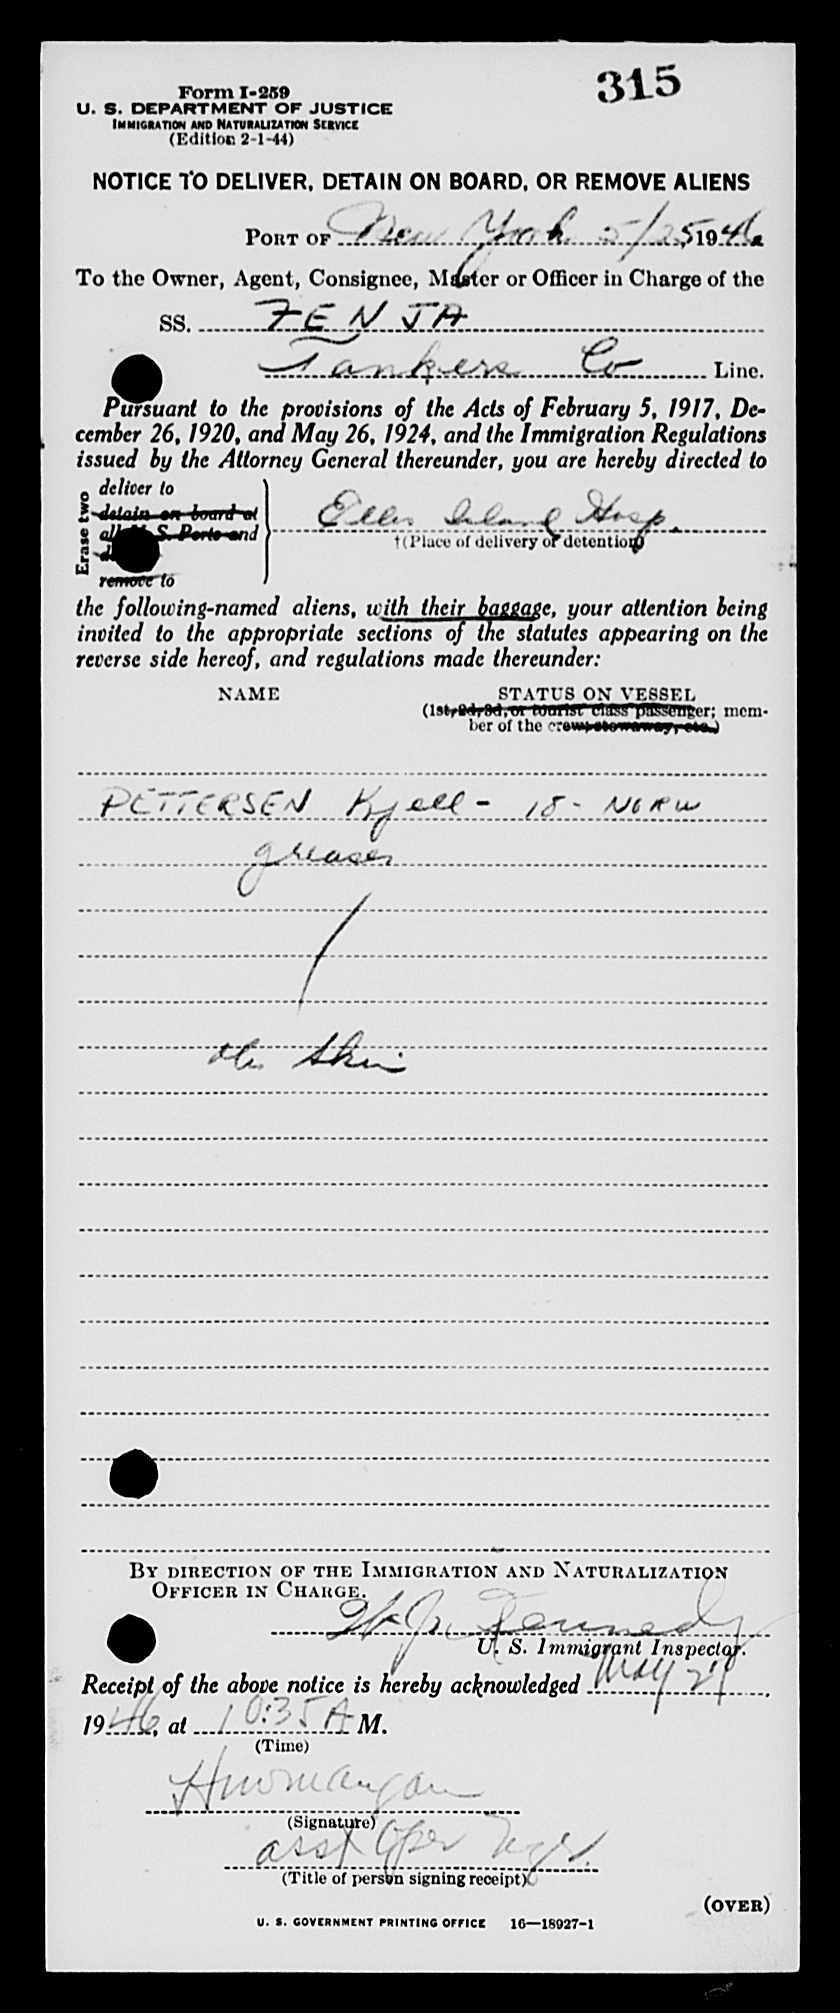 315
Form I-259
U. S. DEPARTMENT OF JUSTICE
IMMIGRATION AND NATURALIZATION SERVICE
(Edition 2-1-44)
NOTICE TO DELIVER, DETAIN ON BOARD, OR REMOVE ALIENS
PORT OF New York 5/25, 1946
To the Owner, Agent, Consignee, Master or Officer in Charge of the
SS. FENJA
Tankers Co Line.
Pursuant to the provisions of the Acts of February 5, 1917, De-
cember 26, 1920, and May 26, 1924, and the Immigration Regulations
issued by the Attorney General thereunder, you are hereby directed to
Erase two
deliver to
detain on board at
all U. S. Ports and
remove to
Ellis Island Hosp.
†(Place of delivery or detention)
the following-named aliens, with their baggage, your attention being
invited to the appropriate sections of the statutes appearing on the
reverse side hereof, and regulations made thereunder:
NAME STATUS ON VESSEL
(1st, 2d, 3d, or tourist class passenger; mem-
ber of the crew, stowaway, etc.)
PETTERSEN Kjell - 18 - NORW
greaser
BY DIRECTION OF THE IMMIGRATION AND NATURALIZATION
OFFICER IN CHARGE.
Kennedy
U. S. Immigrant Inspector.
Receipt of the above notice is hereby acknowledged May 27,
1946, at 10:35 A M.
(Time)
(Signature)
asst Oper Mgr.
(Title of person signing receipt)
(OVER)
U. S. GOVERNMENT PRINTING OFFICE 16—18927-1